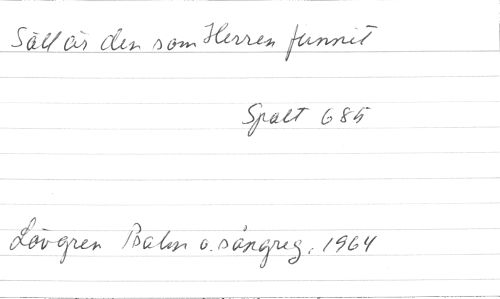 Säll är den som Herren funnit
Spalt 685
Lövgren Psalm o. sångreg. 1964